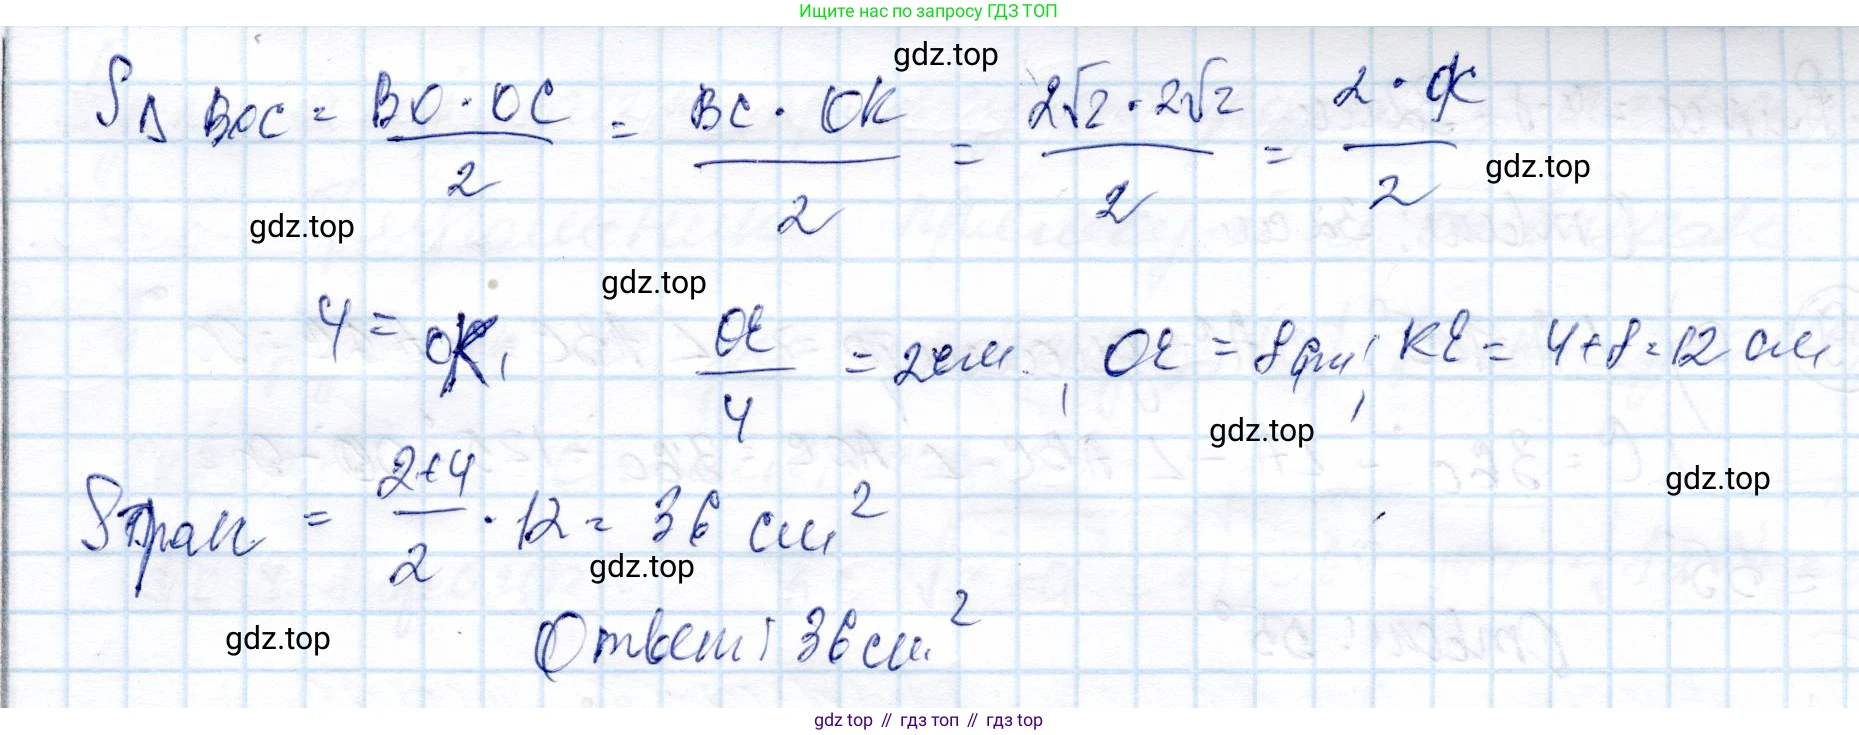 Ищите нас по запросу ГДЗ ТОП
gdz.top
S△ BOC = BO · OC / 2 = BC · OK / 2 = 2√2 · 2√2 / 2 = 2 · OK / 2
gdz.top
gdz.top
gdz.top
4 = OK, OE / 4 = 2 см, OE = 8 см, KE = 4+8=12 см
gdz.top
gdz.top
Sтрап = 2+4 / 2 · 12 = 36 см²
gdz.top
gdz.top
Ответ: 36 см²
gdz top // гдз топ // гдз top